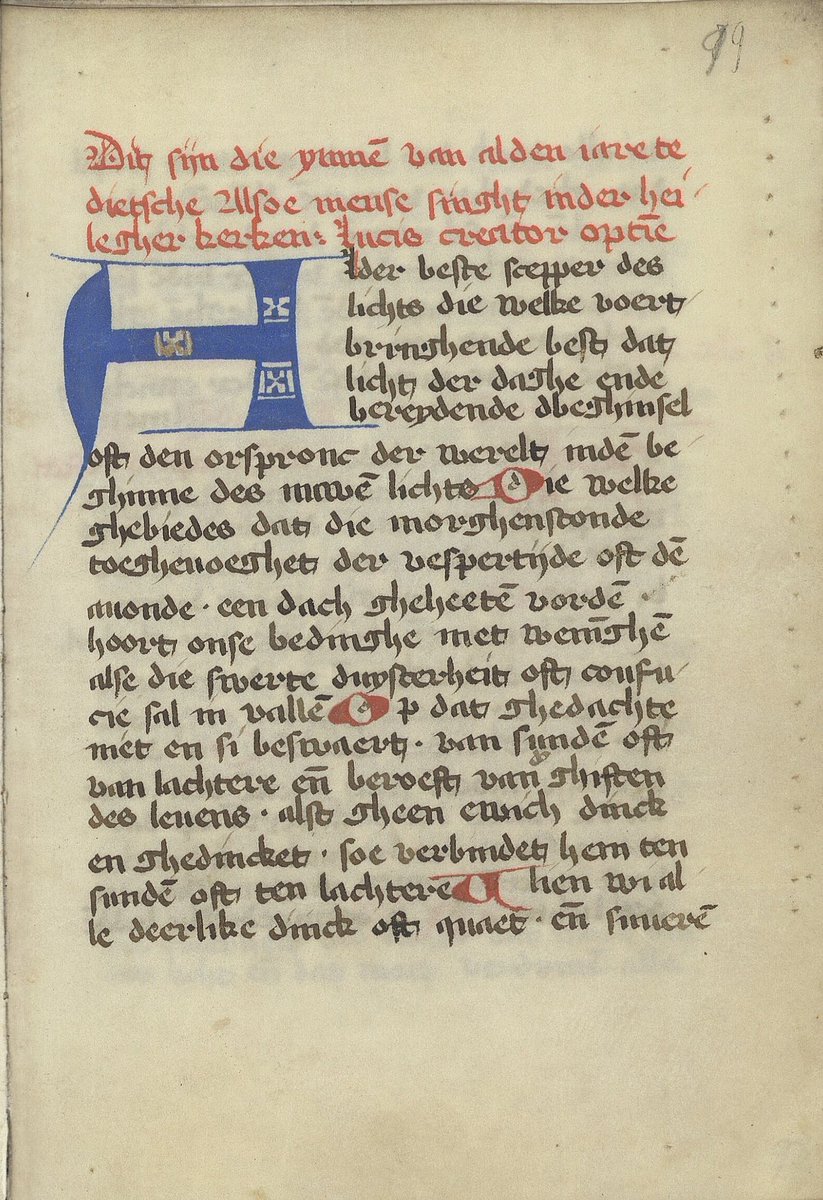 19
Dit sijn die ymnē van al den iare te
dietsche Alsoe mense singht inder hei
legher kerken: Lucis creator optīe
Alder beste scepper des
lichts die welke voert
bringhende best dat
licht der daghe ende
bereydende dbeghinsel
oft den orspronc der werelt indē be
ghinne des nuwē lichts Die welke
ghebiedes dat die morghenstonde
toeghevoeghet der vespertijde oft dē
auonde · een dach gheheetē vordē
hoort onse bedinghe met wenīghē
alse die swerte duysterheit oft confu
cie sal in vallē Op dat ghedachte
niet en si beswaert · van sundē oft
van lachtere eñ beroeft van ghiften
des leuens · alst gheen ewich dinck
en ghedincket · soe verbindet hem ten
sundē oft ten lachtere Alien wi al
le deerlike dinck oft quaet · eñ suuerē